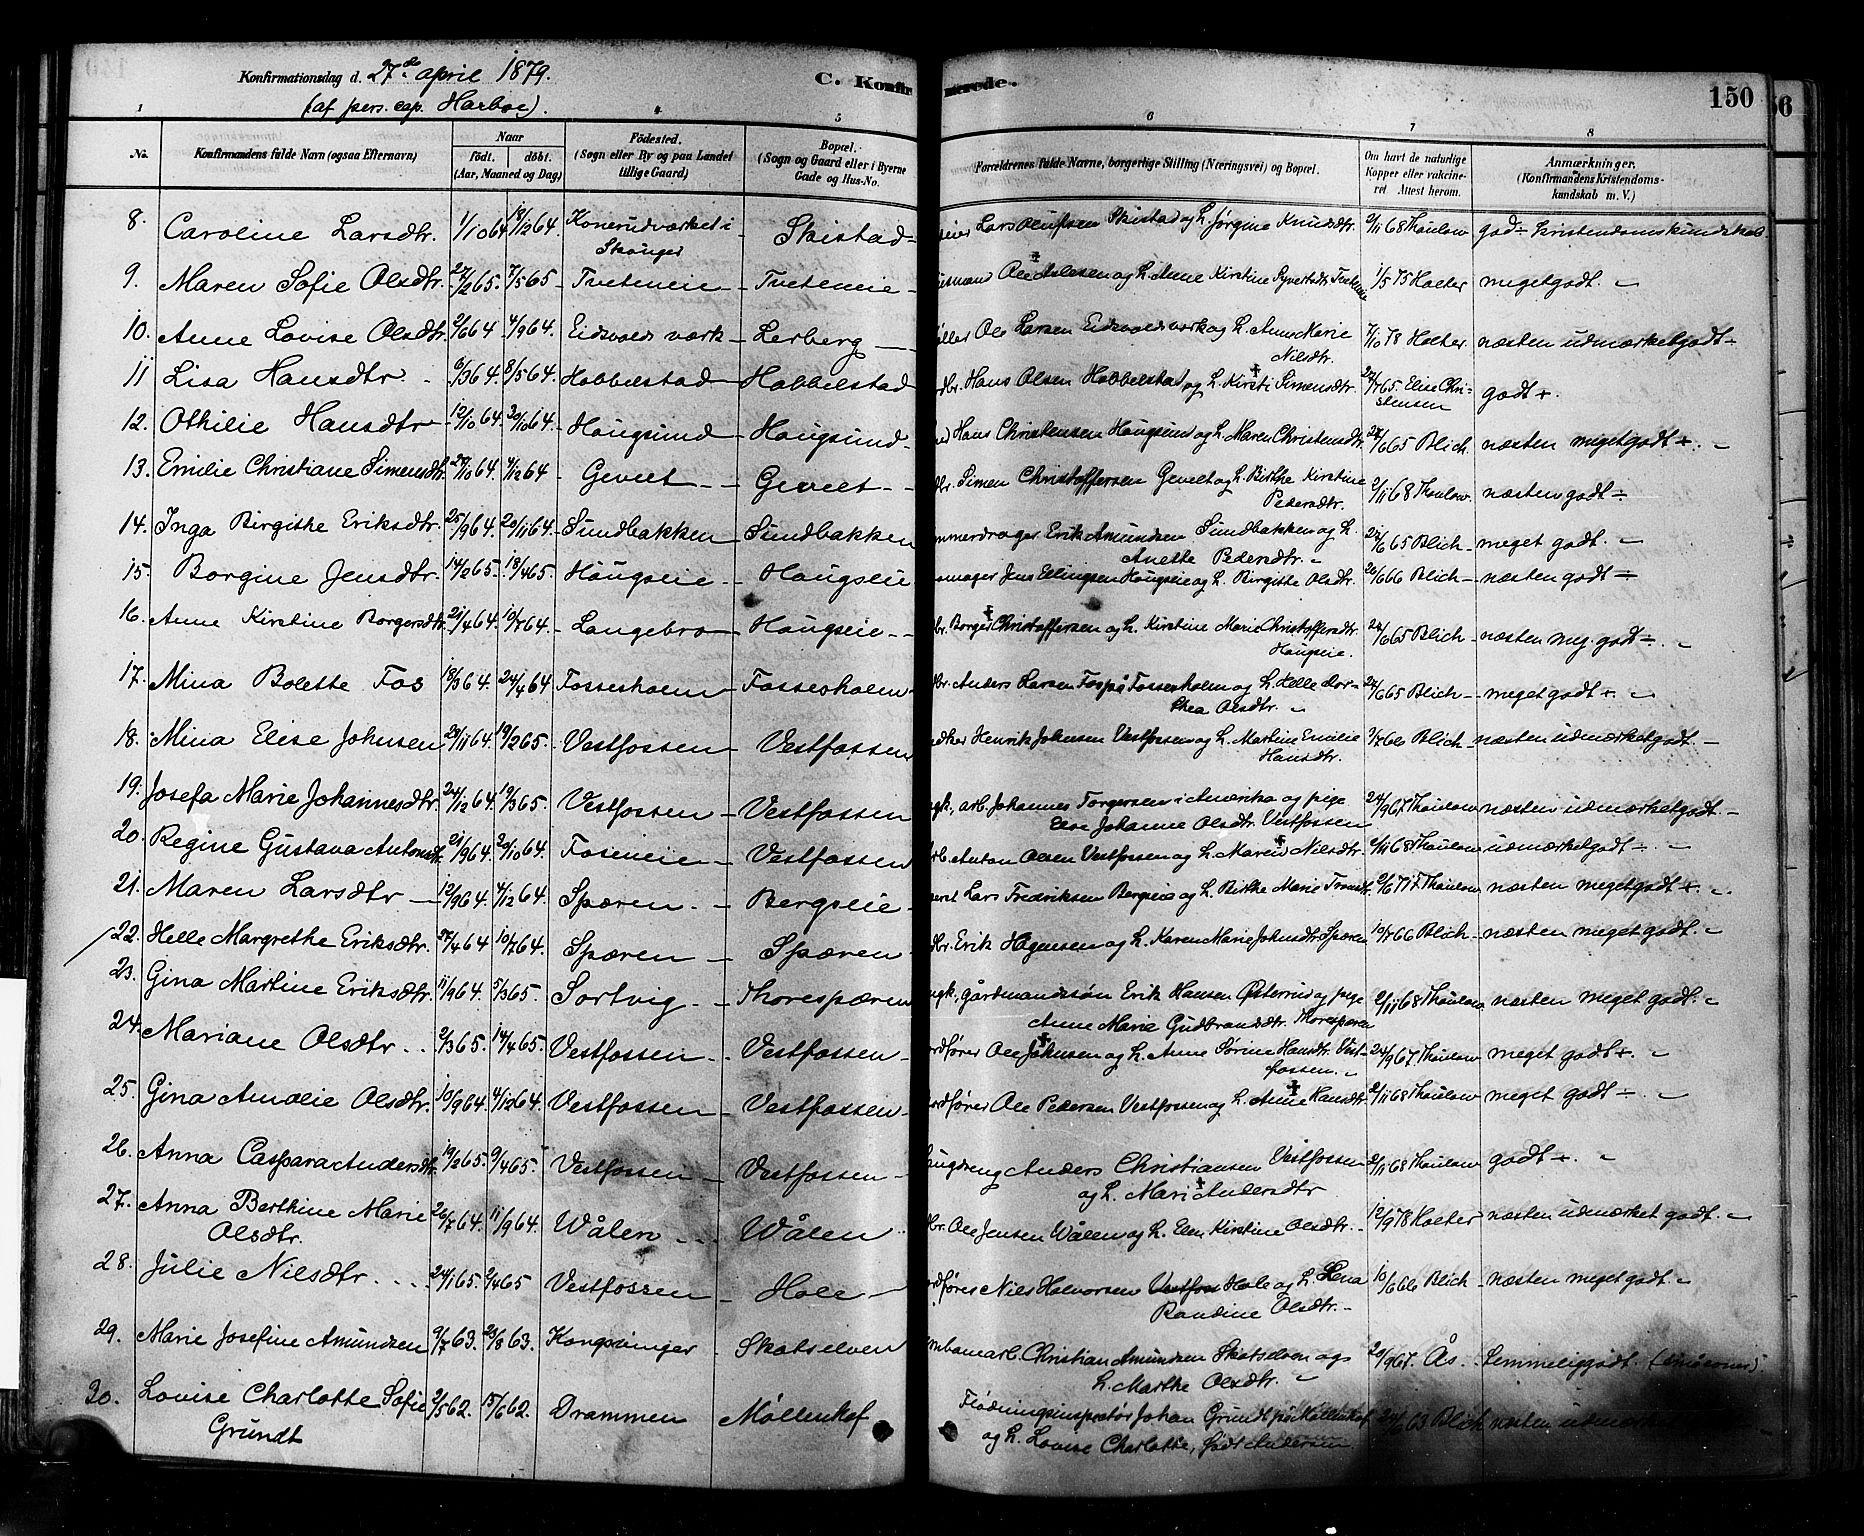 Konfirmationsdag d. 27de april 1879.
(af pers. cap. Harboe).
C. Konfir merede.
150
56
1 4 5 6 7 8
No. Konfirmandens fulde Navn (ogsaa Efternavn) Naar født. døbt. (Aar, Maaned og Dag) Födested. (Sogn eller By og paa Landet tillige Gaard) Bopæl. (Sogn og Gaard eller i Byerne Gade og Hus-No. Forældrenes fulde Navne, borgerlige Stilling (Næringsvei) og Bopæl. Om havt de naturlige Kopper eller vakcineret Attest herom. Anmærkninger. (Konfirmandens Kristendomskundskab m. V.)
8. Caroline Larsdtr. 1/10 64 18/12 64. Konerudværket i Skouger Skistad Lars Olufsen Skistad og h. Jørgine Knudsdtr. 2/11 68 Thaulow god ÷ kristendomskundskab
9. Maren Sofie Olsdtr. 27/2 65. 7/5 65 Tveteneie Tveteneie Ole Aslesen og h. Anne Kirstine Syvertsdtr. 1/5 75 Holter meget godt.
10. Anne Lovise Olsdtr. 2/6 64 4/9 64. Eidsvolds værk Lerberg Ole Larsen Eidsvolds værk og h. Anne Marie Nilsdtr. 7/10 78 Holter. næsten udmærket godt
11 Lisa Hansdtr. 9/3 64. 8/5 64. Hobbelstad Hobbelstad Hans Olsen Hobbelstad og h. Kirsti Simensdtr. 22/7 65. Elise Christensen godt +.
12. Othilie Hansdtr 12/10 64. 30/10 64. Hougsund Hougsund Hans Christensen Hougsund og h. Maren Christensdtr. 65 Blich. næsten meget godt +.
13. Emilie Christiane Simensdtr. 27/10 64. 4/12 64 Gevelt Gevelt Simen Christoffersen Gevelt og h. Birthe Kirstine Pedersdtr. 2/11 68 Thaulow næsten godt ÷
14. Inga Birgithe Eriksdtr. 25/9 64. 20/11 64. Sundbakken Sundbakken Erik Amundsen Sundbakken og h. Anette Pedersdtr. 65 Blich meget godt.
15. Borgine Jensdtr. 14/2 65. 18/4 65. Hougseie Hougseie Jens Ellingsen Hougseie og h. Birgithe Olsdtr. 20/6 66 Blich næsten godt ÷
16. Anne Kirstine Borgersdtr. 21/4 64. 10/7 64. Langebro Hougseie Borger Christoffersen og h. Kirstine Marie Christoffersdtr. Hougseie. 65 Blich næsten meg. godt ÷.
17. Mina Bolette Fos 18/3 64. 24/4 64 Fossesholm Fossesholm Anders Larsen Fos på Fossesholm og h. Helle Dorthea Olsdtr. 65 Blich meget godt +.
18. Mina Elise Johnsen 28/11 64. 19/2 65. Vestfossen Vestfossen Henrik Johnsen Vestfossen og h. Martine Emilie Hansdtr. 66 Blich næsten udmærket godt.
19. Josefa Marie Johannesdtr. 24/12 64. 19/3 65. Vestfossen Vestfossen arb. Johannes Torgersen i Amerika og pige Else Johanne Olsdtr. Vestfossen 24/9 67 Thaulow næsten udmærket godt.
20. Regine Gustava Antonsdtr. 21/9 64. 20/10 64. Foseneie Vestfossen Anton Olsen Vestfossen og h. Maren Nilsdtr. 2/11 68 Thaulow udmærket godt ÷.
21. Maren Larsdtr 12/9 64. 4/12 64. Spæren Bergseie Lars Fredriksen Bergseie og h. Birthe Marie 2/6 71 Thaulow næsten meget godt +.
22. Helle Margrethe Eriksdtr. 27/4 64 10/7 64. Spæren Spæren Erik Hagensen og h. Karen Marie Johnsdtr. Spæren 10/7 66 Blich næsten meget godt.
23. Gina Martine Eriksdtr. 11/9 64. 5/3 65. Sortvig Thorespæren gårdmandssøn Erik Hansen Østerrud og pige Anne Marie Gudbrandsdtr. Thorespæren 2/11 68 Thaulow næsten meget godt.
24. Mariane Olsdtr. 2/3 65. 14/4 65. Vestfossen Vestfossen Ole Johnsen og h. Anne Sørine Hansdtr. Vestfossen. 24/9 67. Thaulow meget godt +.
25. Gina Amalie Olsdtr. 10/9 64. 4/12 64. Vestfossen Vestfossen Ole Pedersen Vestfossen og h. Anne Hansdtr. 2/11 68 Thaulow meget godt ÷.
26. Anna Caspara Andersdtr. 19/2 65. 9/4 65. Vestfossen Vestfossen Anders Christiansen Vestfossen og h. Mari Andersdtr 2/11 68 Thaulow godt +.
27. Anna Berthine Marie Olsdtr. 26/7 64. 11/9 64. Wålen Wålen Ole Jensen Wålen og h. Elen Kirstine Olsdtr. 12/9 78 Holter næsten udmærket godt.
28. Julie Nilsdtr. 24/1 65. 2/4 65 Vestfossen Hole Nils Halvorsen Vestfoss Hole og h. Lena Randine Olsdtr. 66 Blich næsten meget godt.
29. Marie Josefine Amundsen 9/7 63. 23/8 63. Kongsvinger Skotselven Christian Amundsen Skotselven og h. Marthe Olsdtr. 20/9 67. Ås. temmelig godt.
30. Lovise Charlotte Sofie Grundt 2/5 62. 15/6 62. Drammen Møllenhof Flødningsinspektør Johan Grundt på Møllenhof og h. Lovise Charlotte, født Andersen 63 Blich næsten